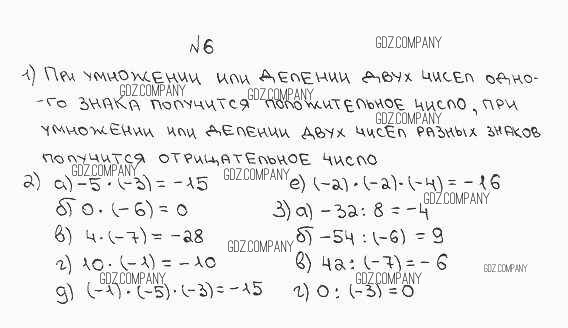 №6
GDZ.COMPANY
1) При умножении или делении двух чисел одно-
GDZ.COMPANY GDZ.COMPANY
-го знака получится положительное число, при
GDZ.COMPANY
умножении или делении двух чисел разных знаков
получится отрицательное число
GDZ.COMPANY GDZ.COMPANY
2) а) -5·(-3)=-15
б) 0·(-6)=0
в) 4·(-7)=-28
г) 10·(-1)=-10
д) (-1)·(-5)·(-3)=-15
е) (-2)·(-2)·(-4)=-16
GDZ.COMPANY
3) а) -32:8=-4
б) -54:(-6)=9
GDZ.COMPANY
в) 42:(-7)=-6
GDZ.COMPANY
GDZ.COMPANY GDZ.COMPANY
г) 0:(-3)=0